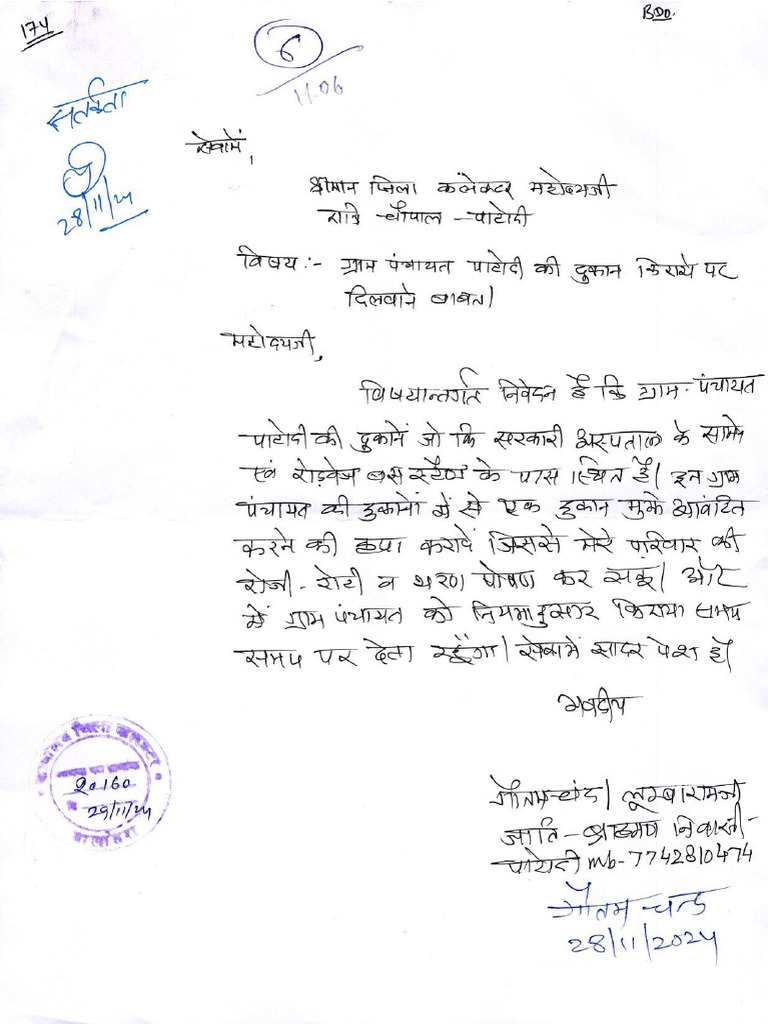 174
BDO.
6
11.06
सतर्कता
28/11/24
सेवामें,
श्रीमान जिला कलेक्टर महोदयजी
रात्रि चौपाल - पाटोदी
विषय :- ग्राम पंचायत पाटोदी की दुकान किराये पर
दिलवाने बाबत।
महोदयजी,
विषयान्तर्गत निवेदन है कि ग्राम-पंचायत
पाटोदी की दुकानें जो कि सरकारी अस्पताल के सामने
एवं रोडवेज बस स्टैण्ड के पास स्थित है। इन ग्राम
पंचायत की दुकानों में से एक दुकान मुझे आवंटित
करने की कृपा करावें जिससे मेरे परिवार की
रोजी-रोटी व भरण पोषण कर सकू। और
में ग्राम पंचायत को नियमानुसार किराया समय
समय पर देता रहूँगा। सेवामें सादर पेश है।
भवदीय
गौतमचंद / लूम्बारामजी
जाति - ब्राह्मण निवासी-
पाटोदी mb- 7742810474
गौतम चन्द
28/11/2024
कार्यालय जिला कलक्टर
20160
29/11/24
बालोतरा